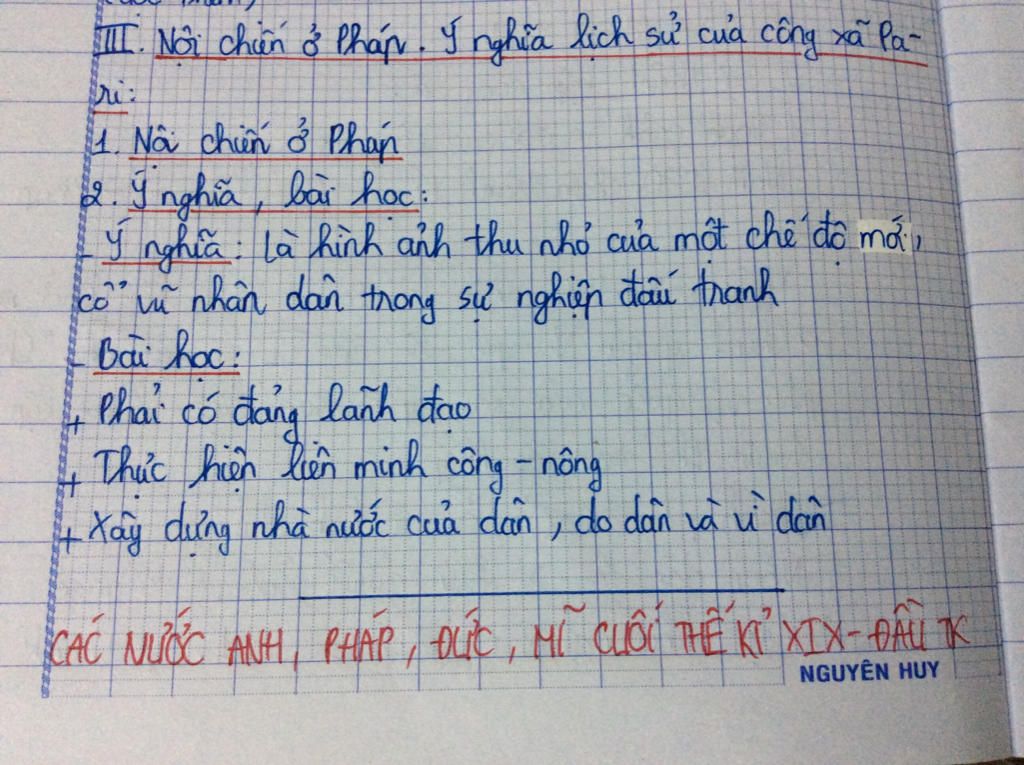 III. Nội chiến ở Pháp. Ý nghĩa lịch sử của công xã Pa-
ri:
1. Nội chiến ở Pháp
2. Ý nghĩa, bài học:
- Ý nghĩa: Là hình ảnh thu nhỏ của một chế độ mới,
cổ vũ nhân dân trong sự nghiệp đấu tranh
- Bài học:
+ Phải có đảng lãnh đạo
+ Thực hiện liên minh công - nông
+ Xây dựng nhà nước của dân, do dân và vì dân
CÁC NƯỚC ANH, PHÁP, ĐỨC, MĨ CUỐI THẾ KỈ XIX - ĐẦU TK
NGUYÊN HUY